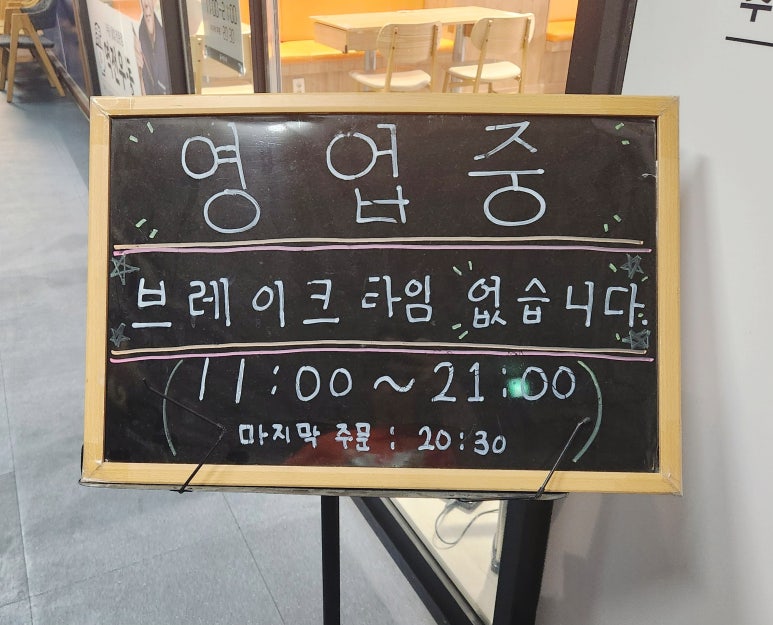 영업중
브레이크타임 없습니다.
(11:00~21:00)
마지막 주문 : 20:30